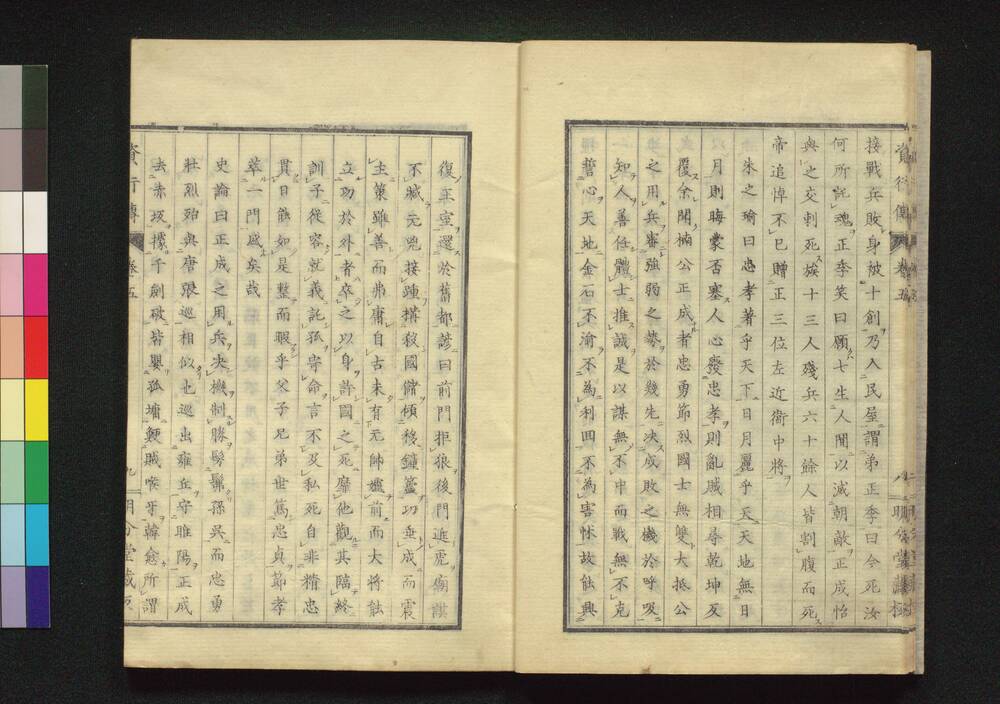 資行傳 卷五 八 明分堂藏板
接戰兵敗身被十創乃入民屋謂弟正季曰今死汝
何所託魂正季笑曰願七生人間以滅朝敵正成怡
與之交刺死族十三人殘兵六十餘人皆割腹而死
帝追悼不已贈正三位左近衛中將
朱之瑜曰忠孝著乎天下日月麗乎天天地無日
月則晦蒙否塞人心廢忠孝則亂賊相尋乾坤反
覆余聞楠公正成者忠勇節烈國士無雙大抵公
之用兵審強弱之勢於幾先决成敗之機於呼吸
知人善任體士推誠是以謀無不中而戰無不克
誓心天地金石不渝不為利囘不為害怵故能興
復王室還於舊都諺曰前門拒狼後門進虎廟謨
不臧元兇接踵構殺國儲傾移鐘簴功垂成而震
主策雖善而弗庸自古未有元帥妬前而大將能
立功於外者卒之以身許國之死靡他觀其臨終
訓子從容就義託孤寄命言不及私死自非精忠
貫日能如是整而暇乎父子兄弟世篤忠貞節孝
萃一門盛矣哉
史論曰正成之用兵决機制勝髣髴孫吳而忠勇
壯烈殆與唐張巡相似也巡出雍丘守睢陽正成
去赤坂據千劍破皆嬰孤墉鯁賊喉牙韓愈所謂
資行傳 卷五 九 明分堂藏板